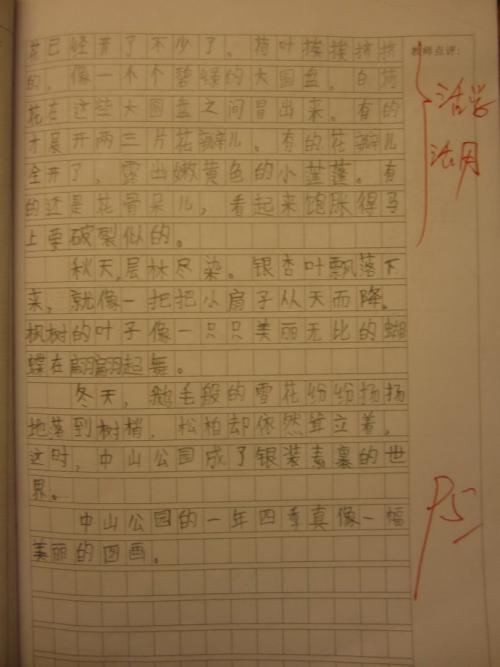 花已经开了不少了。荷叶挨挨挤挤
教师点评:
的,像一个个碧绿的大圆盘。白荷
花在这些大圆盘之间冒出来。有的
活学
才展开两三片花瓣儿。有的花瓣儿
活用
全开了,露出嫩黄色的小莲蓬。有
的还是花骨朵儿,看起来饱胀得马
上要破裂似的。
秋天,层林尽染。银杏叶飘落下
来,就像一把把小扇子从天而降。
枫树的叶子像一只只美丽无比的蝴
蝶在翩翩起舞。
冬天,鹅毛般的雪花纷纷扬扬
地落到树梢,松柏却依然耸立着,
这时,中山公园成了银装素裹的世
界。
中山公园的一年四季真像一幅
美丽的图画。